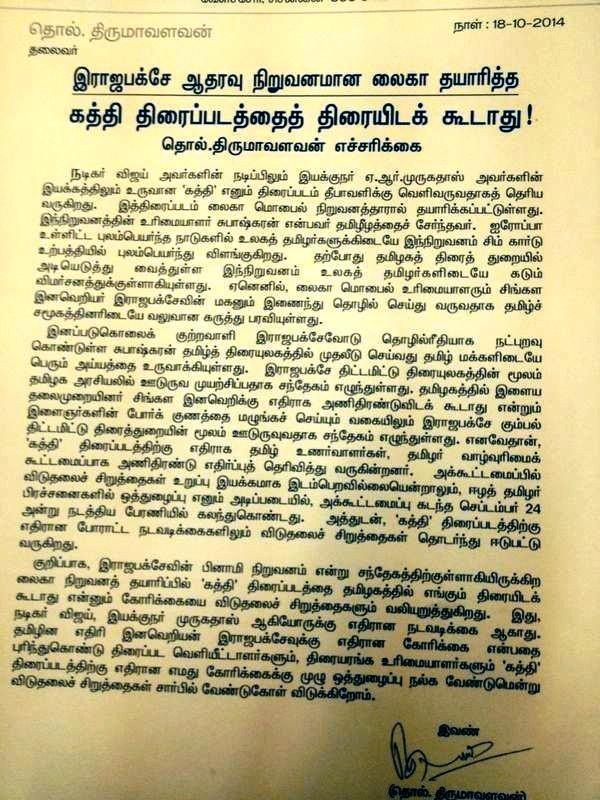 வேளச்சேரி, சென்னை
தொல். திருமாவளவன்
நாள் : 18-10-2014
தலைவர்
இராஜபக்சே ஆதரவு நிறுவனமான லைகா தயாரித்த
கத்தி திரைப்படத்தைத் திரையிடக் கூடாது!
தொல்.திருமாவளவன் எச்சரிக்கை
நடிகர் விஜய் அவர்களின் நடிப்பிலும் இயக்குநர் ஏ.ஆர்.முருகதாஸ் அவர்களின்
இயக்கத்திலும் உருவான 'கத்தி' எனும் திரைப்படம் தீபாவளிக்கு வெளிவருவதாகத் தெரிய
வருகிறது. இத்திரைப்படம் லைகா மொபைல் நிறுவனத்தாரால் தயாரிக்கப்பட்டுள்ளது.
இந்நிறுவனத்தின் உரிமையாளர் சுபாஷ்கரன் என்பவர் தமிழீழத்தைச் சேர்ந்தவர். ஐரோப்பா
உள்ளிட்ட புலம்பெயர்ந்த நாடுகளில் உலகத் தமிழர்களுக்கிடையே இந்நிறுவனம் சிம் கார்டு
உற்பத்தியில் புலம்பெயர்ந்து விளங்குகிறது. தற்போது தமிழகத் திரைத் துறையில்
அடியெடுத்து வைத்துள்ள இந்நிறுவனம் உலகத் தமிழர்களிடையே கடும்
விமர்சனத்துக்குள்ளாகியுள்ளது. ஏனெனில், லைகா மொபைல் உரிமையாளரும் சிங்கள
இனவெறியர் இராஜபக்சேவின் மகனும் இணைந்து தொழில் செய்து வருவதாக தமிழ்ச்
சமூகத்தினரிடையே வலுவான கருத்து பரவியுள்ளது.
இனப்படுகொலைக் குற்றவாளி இராஜபக்சேவோடு தொழில்ரீதியாக நட்புறவு
கொண்டுள்ள சுபாஷ்கரன் தமிழ்த் திரையுலகத்தில் முதலீடு செய்வது தமிழ் மக்களிடையே
பெரும் அய்யத்தை உருவாக்கியுள்ளது. இராஜபக்சே திட்டமிட்டு திரையுலகத்தின் மூலம்
தமிழக அரசியலில் ஊடுருவ முயற்சிப்பதாக சந்தேகம் எழுந்துள்ளது. தமிழகத்தில் இளைய
தலைமுறையினர் சிங்கள இனவெறிக்கு எதிராக அணிதிரண்டுவிடக் கூடாது என்றும்
இளைஞர்களின் போர்க் குணத்தை மழுங்கச் செய்யும் வகையிலும் இராஜபக்சே கும்பல்
திட்டமிட்டு திரைத்துறையின் மூலம் ஊடுருவுவதாக சந்தேகம் எழுந்துள்ளது. எனவேதான்,
'கத்தி' திரைப்படத்திற்கு எதிராக தமிழ் உணர்வாளர்கள், தமிழர் வாழ்வுரிமைக்
கூட்டமைப்பாக அணிதிரண்டு எதிர்ப்புத் தெரிவித்து வருகின்றனர். அக்கூட்டமைப்பில்
விடுதலைச் சிறுத்தைகள் உறுப்பு இயக்கமாக இடம்பெறவில்லையென்றாலும், ஈழத் தமிழர்
பிரச்சனைகளில் ஒத்துழைப்பு எனும் அடிப்படையில், அக்கூட்டமைப்பு கடந்த செப்டம்பர் 24
அன்று நடத்திய பேரணியில் கலந்துகொண்டது. அத்துடன், 'கத்தி' திரைப்படத்திற்கு
எதிரான போராட்ட நடவடிக்கைகளிலும் விடுதலைச் சிறுத்தைகள் தொடர்ந்து ஈடுபட்டு
வருகிறது.
குறிப்பாக, இராஜபக்சேவின் பினாமி நிறுவனம் என்று சந்தேகத்திற்குள்ளாகியிருக்கிற
லைகா நிறுவனத் தயாரிப்பில் 'கத்தி' திரைப்படத்தை தமிழகத்தில் எங்கும் திரையிடக்
கூடாது என்னும் கோரிக்கையை விடுதலைச் சிறுத்தைகளும் வலியுறுத்துகிறது. இது,
நடிகர் விஜய், இயக்குநர் முருகதாஸ் ஆகியோருக்கு எதிரான நடவடிக்கை ஆகாது.
தமிழின எதிரி இனவெறியன் இராஜபக்சேவுக்கு எதிரான கோரிக்கை என்பதை
புரிந்துகொண்டு திரைப்பட வெளியீட்டாளர்களும், திரையரங்க உரிமையாளர்களும் 'கத்தி'
திரைப்படத்திற்கு எதிரான எமது கோரிக்கைக்கு முழு ஒத்துழைப்பு நல்க வேண்டுமென்று
விடுதலைச் சிறுத்தைகள் சார்பில் வேண்டுகோள் விடுக்கிறோம்.
இவண்
(தொல். திருமாவளவன்)